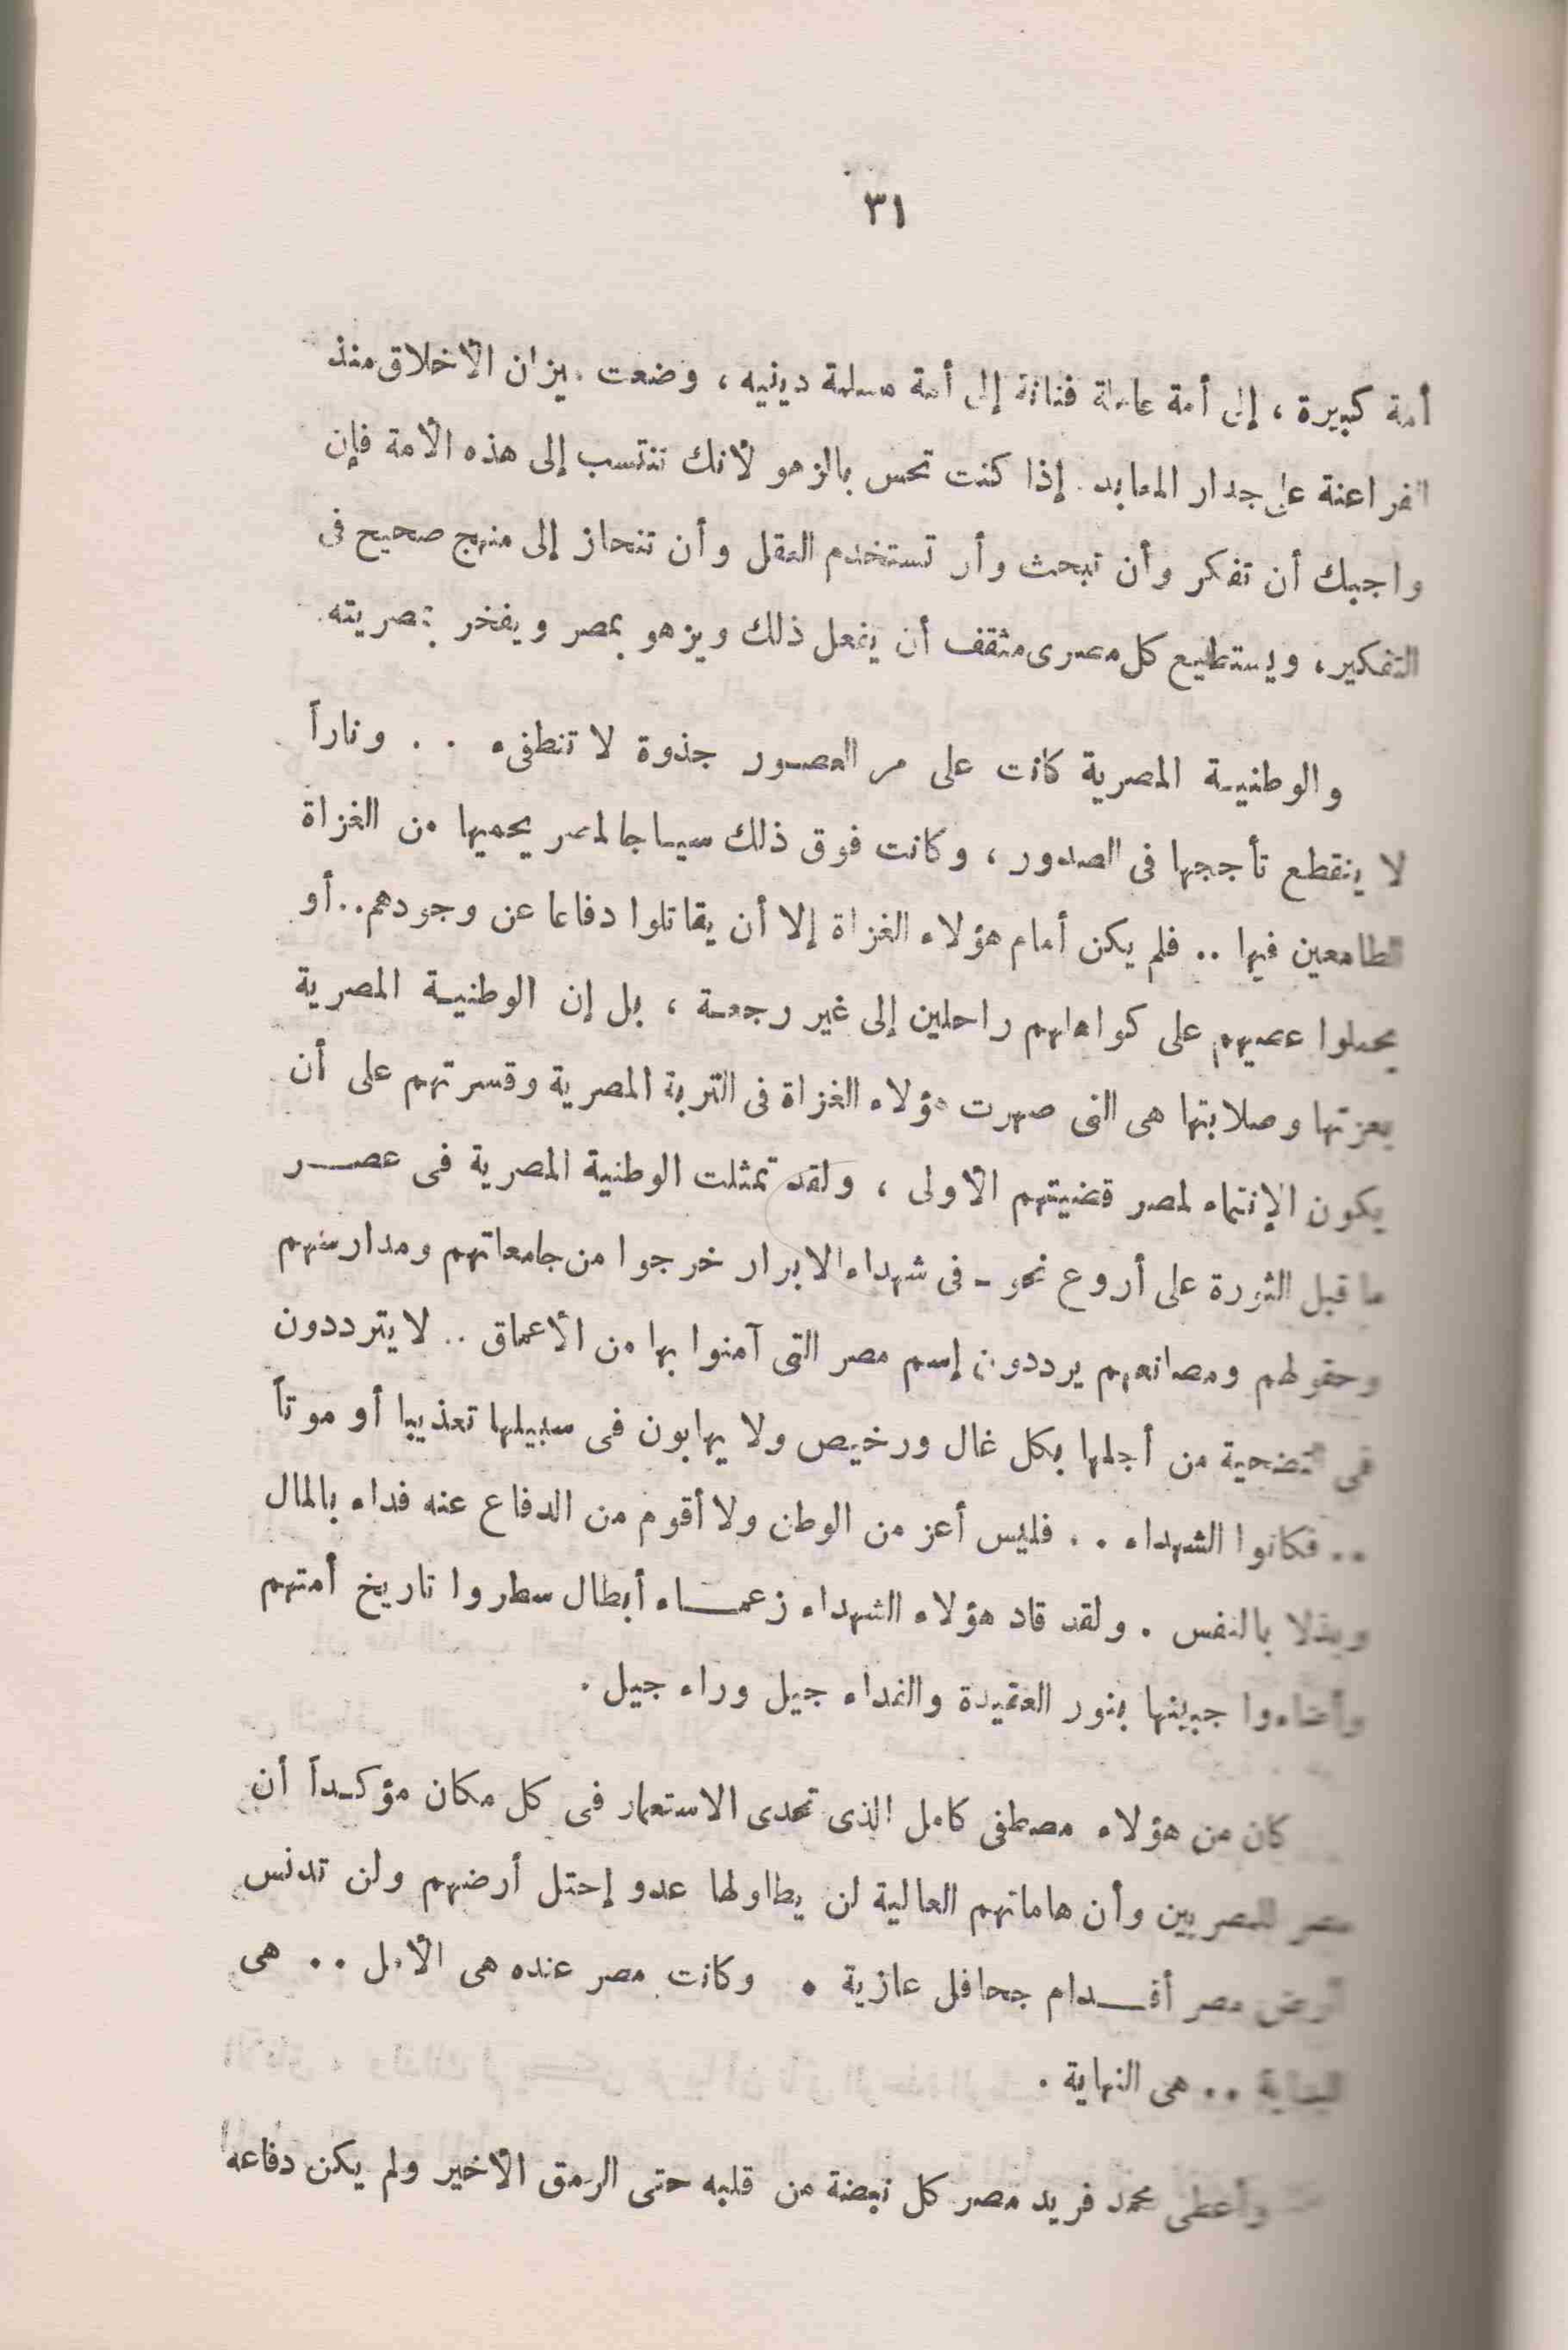 ٣١
أمة كبيرة ، إلى أمة عاملة فنانة إلى أمة مسلمة دينيه ، وضعت ميزان الأخلاق منذ
الفراعنة على جدار المعابد. إذا كنت تحس بالزهو لأنك تنتسب إلى هذه الأمة فإن
واجبك أن تفكر وأن تبحث وأن تستخدم العقل وأن تنحاز إلى منهج صحيح فى
التفكير، ويستطيع كل مصرى مثقف أن يفعل ذلك ويزهو بمصر ويفخر بمصريته.
والوطنيـة المصرية كانت على مر العصـور جذوة لا تنطفىء . . وناراً
لا ينقطع تأججها فى الصدور ، وكانت فوق ذلك سيـاجا لمصر يحميها من الغزاة
الطامعين فيها .. فلم يكن أمام هؤلاء الغزاة إلا أن يقاتلوا دفاعا عن وجودهم.. أو
يحملوا عصيهم على كواهلهم راحلين إلى غير رجعـة ، بل إن الوطنيـة المصرية
بعزتها وصلابتها هى التى صهرت هؤلاء الغزاة فى التربة المصرية وقسرتهم على أن
يكون الإنتماء لمصر قضيتهم الأولى ، ولقد تمثلت الوطنية المصرية فى عصــر
ما قبل الثورة على أروع نحو - فى شهداء الابرار خرجوا من جامعاتهم ومدارسهم
وحقولهم ومصانعهم يرددون إسم مصر التى آمنوا بها من الأعماق .. لا يترددون
فى التضحية من أجلها بكل غال ورخيص ولا يهابون فى سبيلها تعذيبا أو موتاً
.. فكانوا الشهداء .. فليس أعز من الوطن ولا أقوم من الدفاع عنه فداء بالمال
وبذلا بالنفس . ولقد قاد هؤلاء الشهداء زعمــاء أبطال سطروا تاريخ أمتهم
وأضاءوا جبينها بنور العقيدة والفداء جيل وراء جيل .
كان من هؤلاء مصطفى كامل الذى تحدى الاستعمار فى كل مكان مؤكـداً أن
مصر للمصريين وأن هاماتهم العالية لن يطاولها عدو إحتل أرضهم ولن تدنس
أرض مصر أقــدام جحافل عازية . وكانت مصر عنده هى الأمل .. هى
البداية .. هى النهاية .
وأعطى محمد فريد مصر كل نبضة من قلبه حتى الرمق الأخير ولم يكن دفاعه